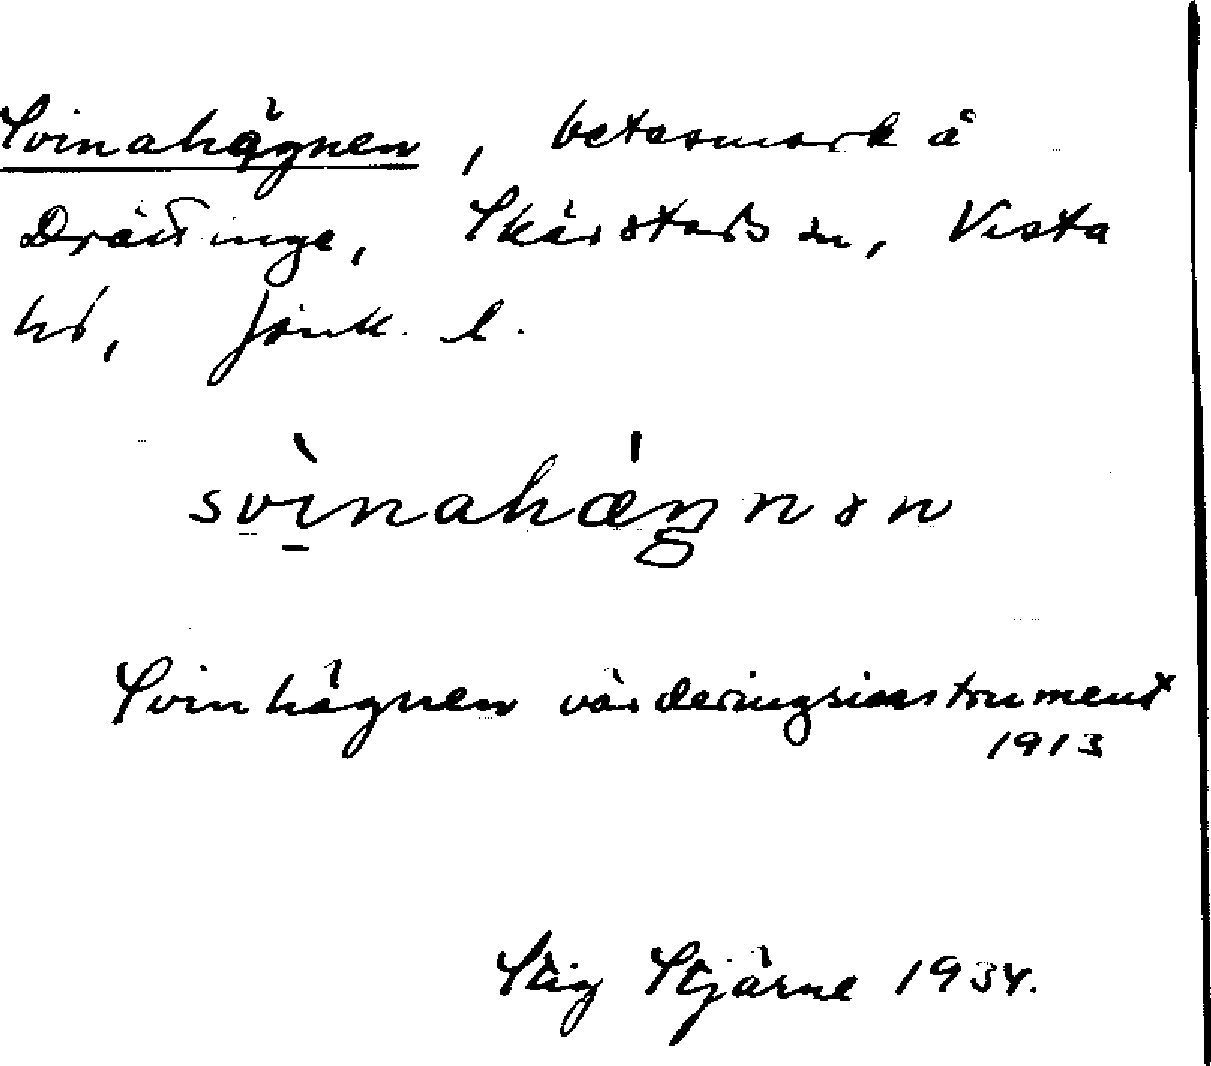 Svinahägnen, betesmark å
Drättinge, Skärstads sn, Vista
hd, Jönk. l.
svìnahǽŋnən
Svinhägnen värderingsinstrument
1913
Stig Stjärne 1934.